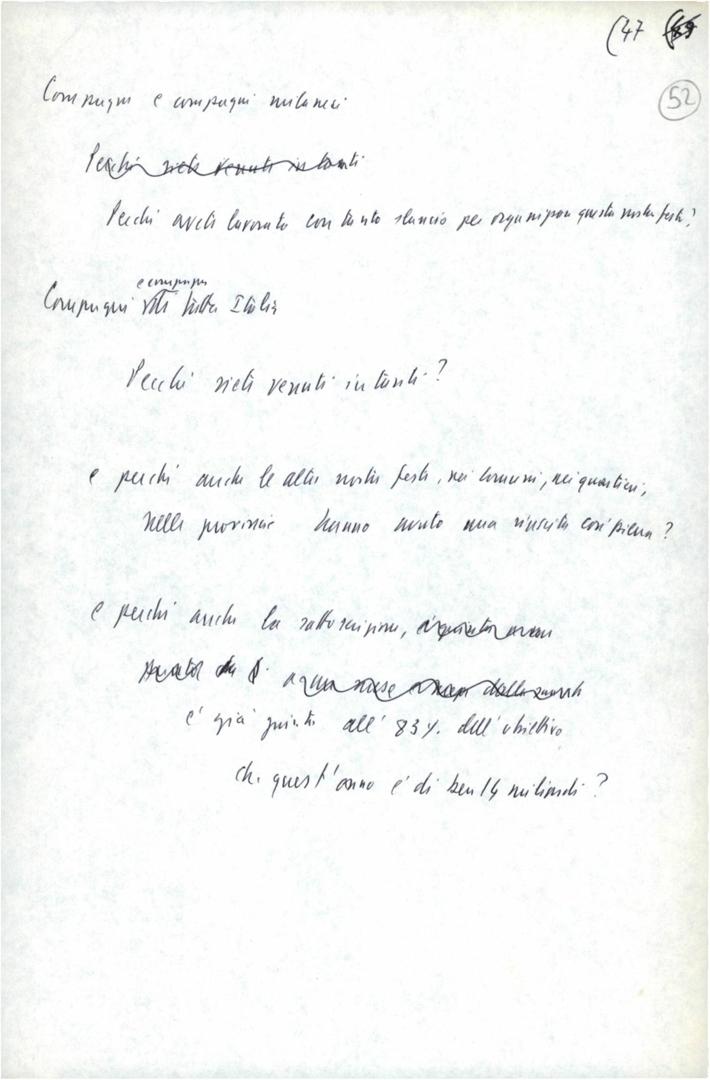 (47
52
Compagni e compagni milanesi
Perché siete venuti in tanti
Perché avete lavorato con tanto slancio per organizzare questa nostra festa?
e compagni
Compagni di tutta Italia
Perché siete venuti in tanti?
e perché anche le altre nostre feste, nei comuni, nei quartieri,
nelle province hanno avuto una riuscita così piena?
e perché anche la sottoscrizione,
a un mese dalla
è già giunta all'83% dell'obiettivo
che quest'anno è di ben 14 miliardi?